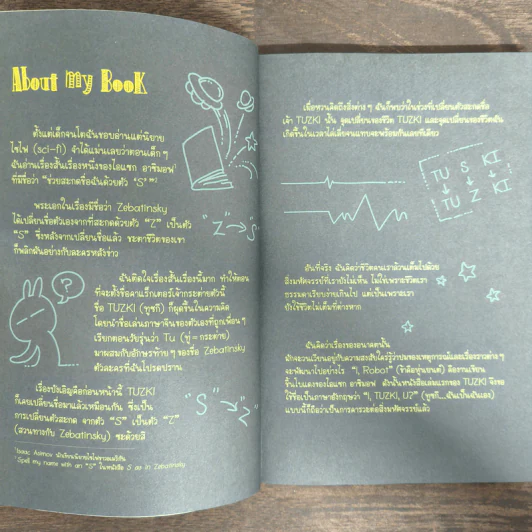 About my Book
ตั้งแต่เด็กจนโตฉันชอบอ่านแต่นิยาย
ไซไฟ (sci-fi) จำได้แม่นเลยว่าตอนเด็ก ๆ
ฉันอ่านเรื่องสั้นเรื่องหนึ่งของไอแซก อาซิมอฟ¹
ที่มีชื่อว่า “ช่วยสะกดชื่อฉันด้วยตัว “S””²
พระเอกในเรื่องมีชื่อว่า Zebatinsky
ได้เปลี่ยนชื่อตัวเองจากที่สะกดด้วยตัว “Z” เป็นตัว
“S” ซึ่งหลังจากเปลี่ยนชื่อแล้ว ชะตาชีวิตของเขา
ก็พลิกผันอย่างกับละครหลังข่าว
"Z" → "S"
ฉันติดใจเรื่องสั้นเรื่องนี้มาก ทำให้ตอน
ที่จะตั้งชื่อคาแร็กเตอร์เจ้ากระต่ายตัวนี้
ชื่อ TUZKI (ทูซกี) ก็ผุดขึ้นในความคิด
โดยนำชื่อเล่นภาษาจีนของตัวเองที่ถูกเพื่อน ๆ
เรียกตอนวัยรุ่นว่า Tu (ทู่ = กระต่าย)
มาผสมกับอักษรท้าย ๆ ของชื่อ Zebatinsky
ตัวละครที่ฉันโปรดปราน
?
เรื่องบังเอิญคือก่อนหน้านี้ TUZKI
ก็เคยเปลี่ยนชื่อมาแล้วเหมือนกัน ซึ่งเป็น
การเปลี่ยนตัวสะกด จากตัว “S” เป็นตัว “Z”
(สวนทางกับ Zebatinsky) ซะด้วยสิ
"S" → "Z"
¹ Isaac Asimov นักเขียนนิยายไซไฟชาวอเมริกัน
² Spell my name with an “S” ในหนังสือ S as in Zebatinsky
เมื่อหวนคิดถึงสิ่งต่าง ๆ ฉันก็พบว่าในช่วงที่เปลี่ยนตัวสะกดชื่อ
เจ้า TUZKI นั้น จุดเปลี่ยนของชีวิต TUZKI และจุดเปลี่ยนของชีวิตฉัน
เกิดขึ้นในเวลาไล่เลี่ยจนแทบจะพร้อมกันเลยทีเดียว
TU S KI
TU Z KI
อันที่จริง ฉันคิดว่าชีวิตคนเราล้วนเต็มไปด้วย
สิ่งมหัศจรรย์ที่เรายังไม่เห็น ไม่ใช่เพราะชีวิตเรา
ธรรมดาเรียบง่ายเกินไป แต่เป็นเพราะเรา
ยังใช้ชีวิตไม่เต็มที่ต่างหาก
ฉันคิดว่าเรื่องของอนาคตนั้น
“I, Robot” (ข้าคือหุ่นยนต์) คืองานเขียน
ชิ้นโบแดงของไอแซก อาซิมอฟ ดังนั้นหนังสือเล่มแรกของ TUZKI จึงขอ
ใช้ชื่อเป็นภาษาอังกฤษว่า “I, TUZKI, U?” (ทูซกี...ฉันเป็นฉันเอง)
แบบนี้ก็ถือว่าเป็นการคารวะต่อสิ่งมหัศจรรย์แล้ว